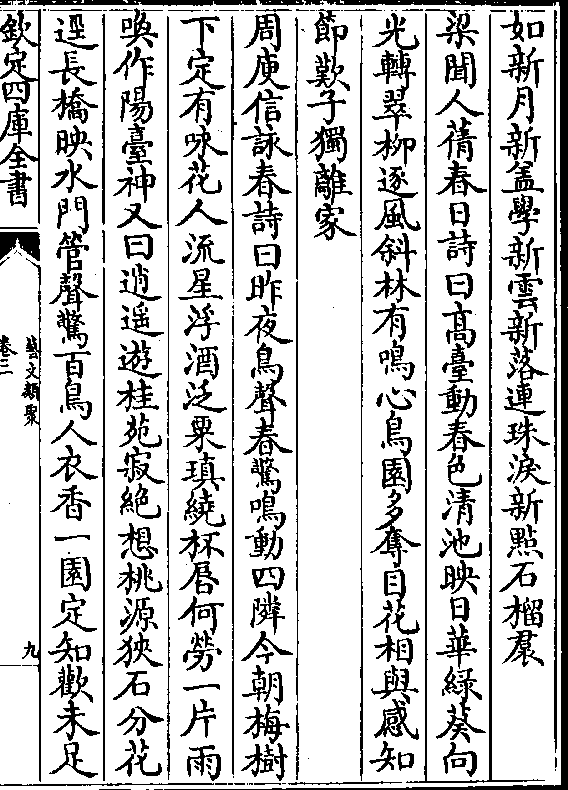 如新月新盖學新雲新落連珠淚新點石榴裠
梁聞人蒨春日詩曰髙臺動春色清池映日華緑葵向
光轉翠柳逐風斜林有鳴心鳥園多奪目花相與感知
節歎子獨離家
周庾信詠春詩曰昨夜鳥聲春驚鳴動四隣今朝梅樹
下定有咏花人流星浮酒泛粟瑱繞杯唇何勞一片雨
喚作陽臺神又曰逍遥遊桂苑寂絶想桃源狹石分花
逕長橋映水門管聲驚百鳥人衣香一園定知歡未足
欽定四庫全書
藝文類聚
卷三
九